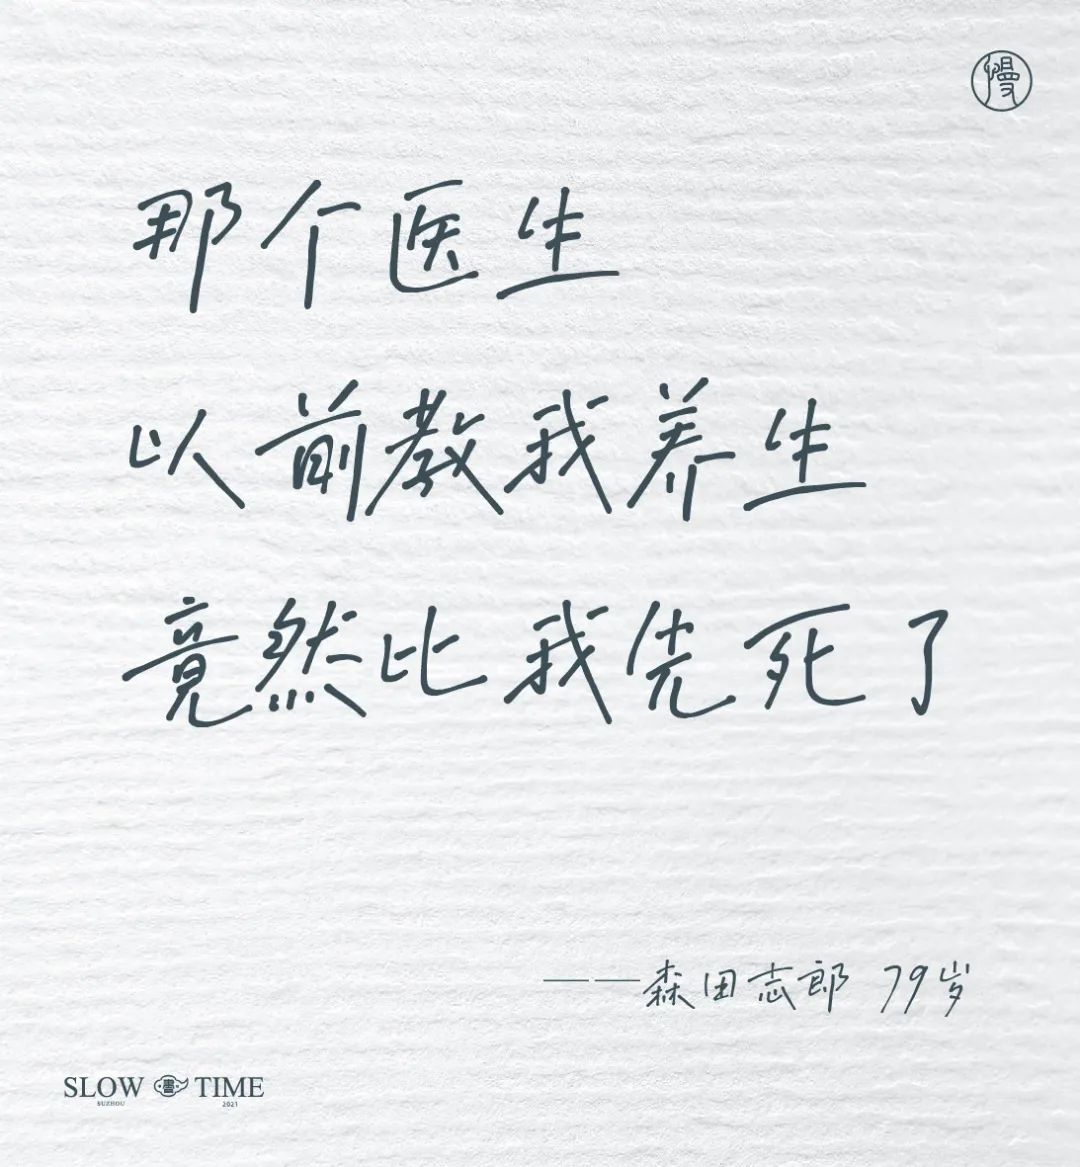 慢
那个医生
以前教我养生
竟然比我先死了
——森田志郎 79岁
SLOW TIME
SUZHOU 2021